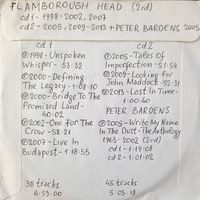 FLAMBOROUGH HEAD (2cd)
cd 1 - 1998-2002, 2007
cd 2 - 2005, 2009-2013 + PETER BARDENS 2005
cd 1
① 1998 - Unspoken
Whisper - 53:32
② 2000 - Defining
The Legacy - 1:08:10
③ 2000 - Bridge To The
Promised Land -
40:02
④ 2002 - One For The
Crow - 58:21
⑤ 2007 - Live In
Budapest - 1:18:55
38 tracks
4:59:00
cd 2
① 2005 - Tales Of
Imperfection - 51:54
② 2009 - Looking For
John Maddock - 52:31
③ 2013 - Lost In Time -
1:00:40
PETER BARDENS
① 2005 - Write My Name
In The Dust - The Anthology
1963-2002 (2cd)
cd 1 - 1:19:08
cd 2 - 1:01:02
45 tracks
5:05:18